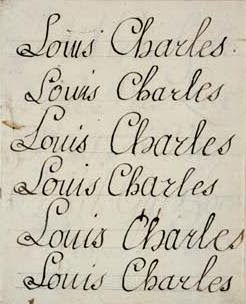 Louis Charles.
Louis Charles
Louis Charles
Louis Charles
Louis Charles
Louis Charles